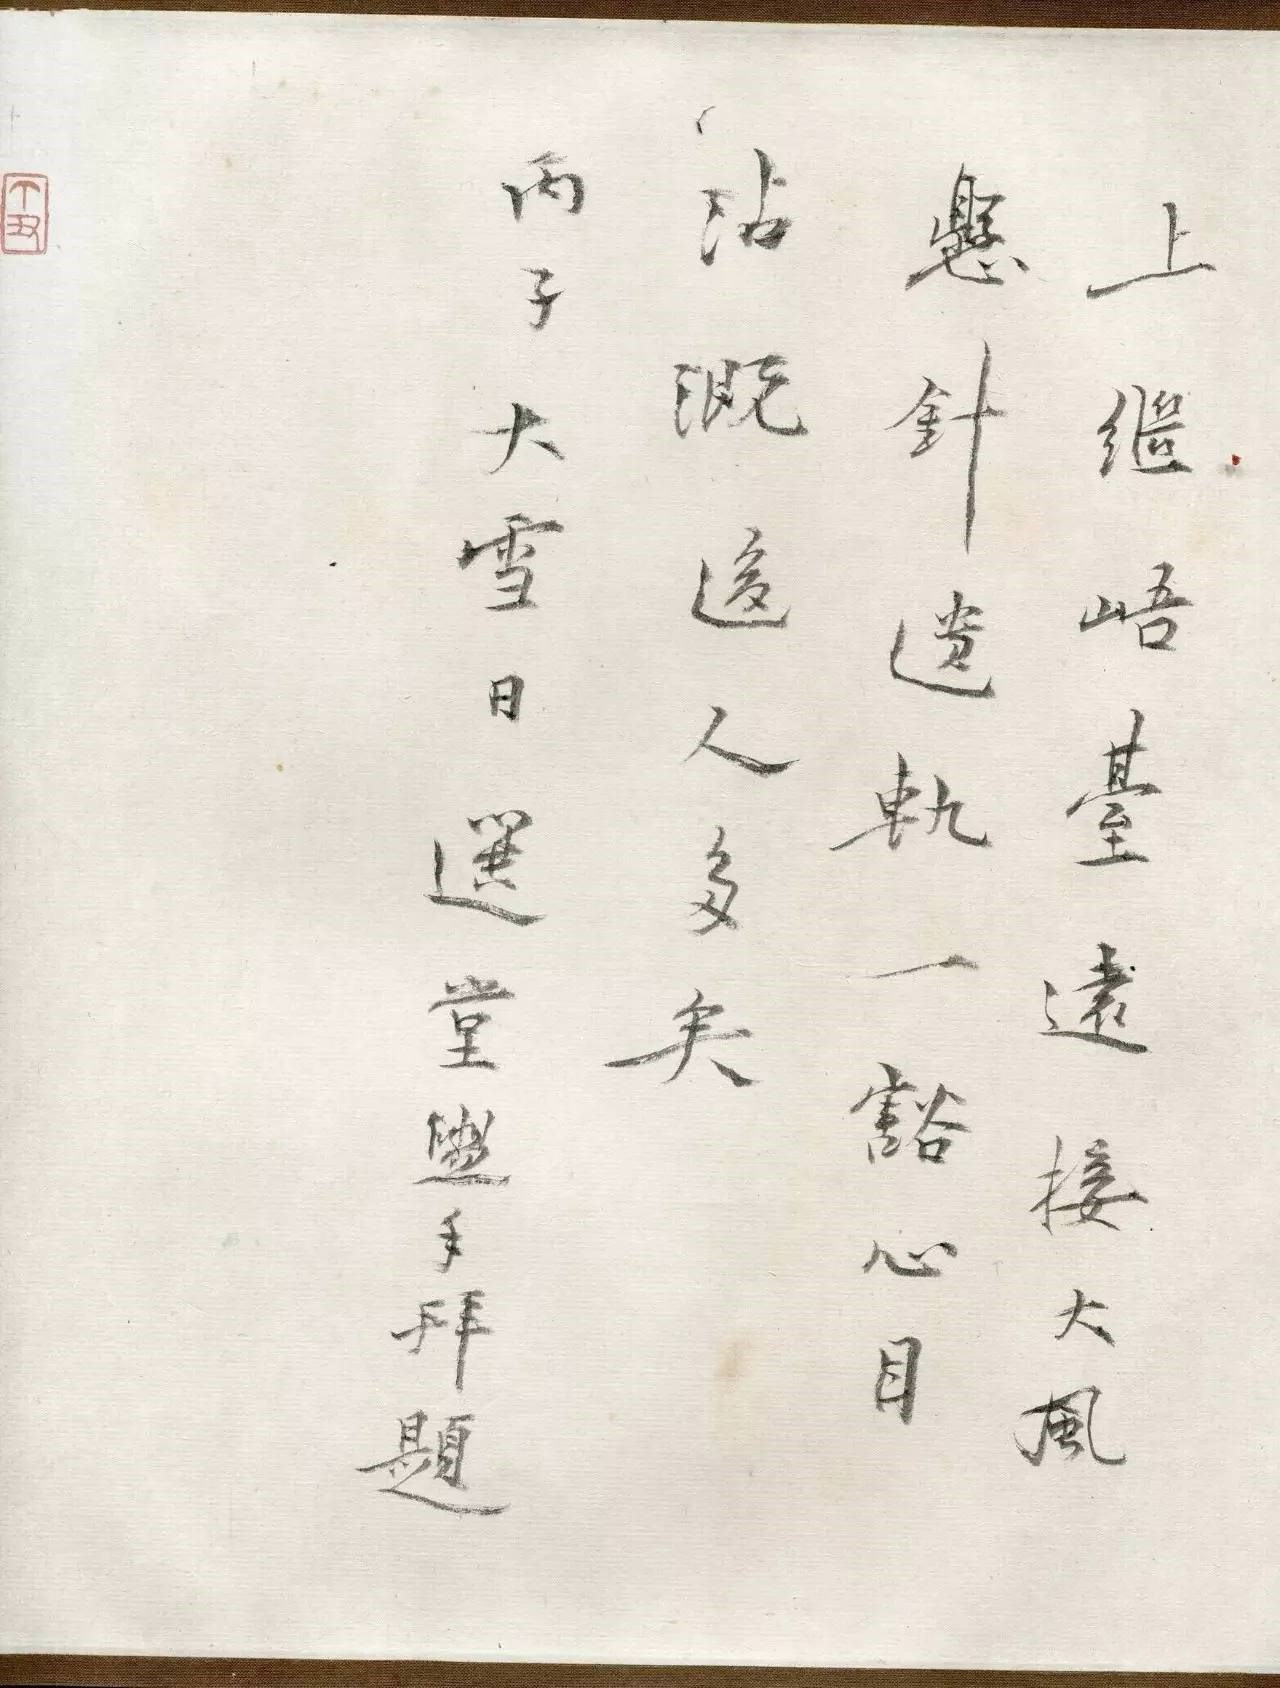 上繼峿臺遠接大風
懸針遺軌一豁心目
沾溉後人多矣
丙子大雪日選堂盥手拜題
丁丑